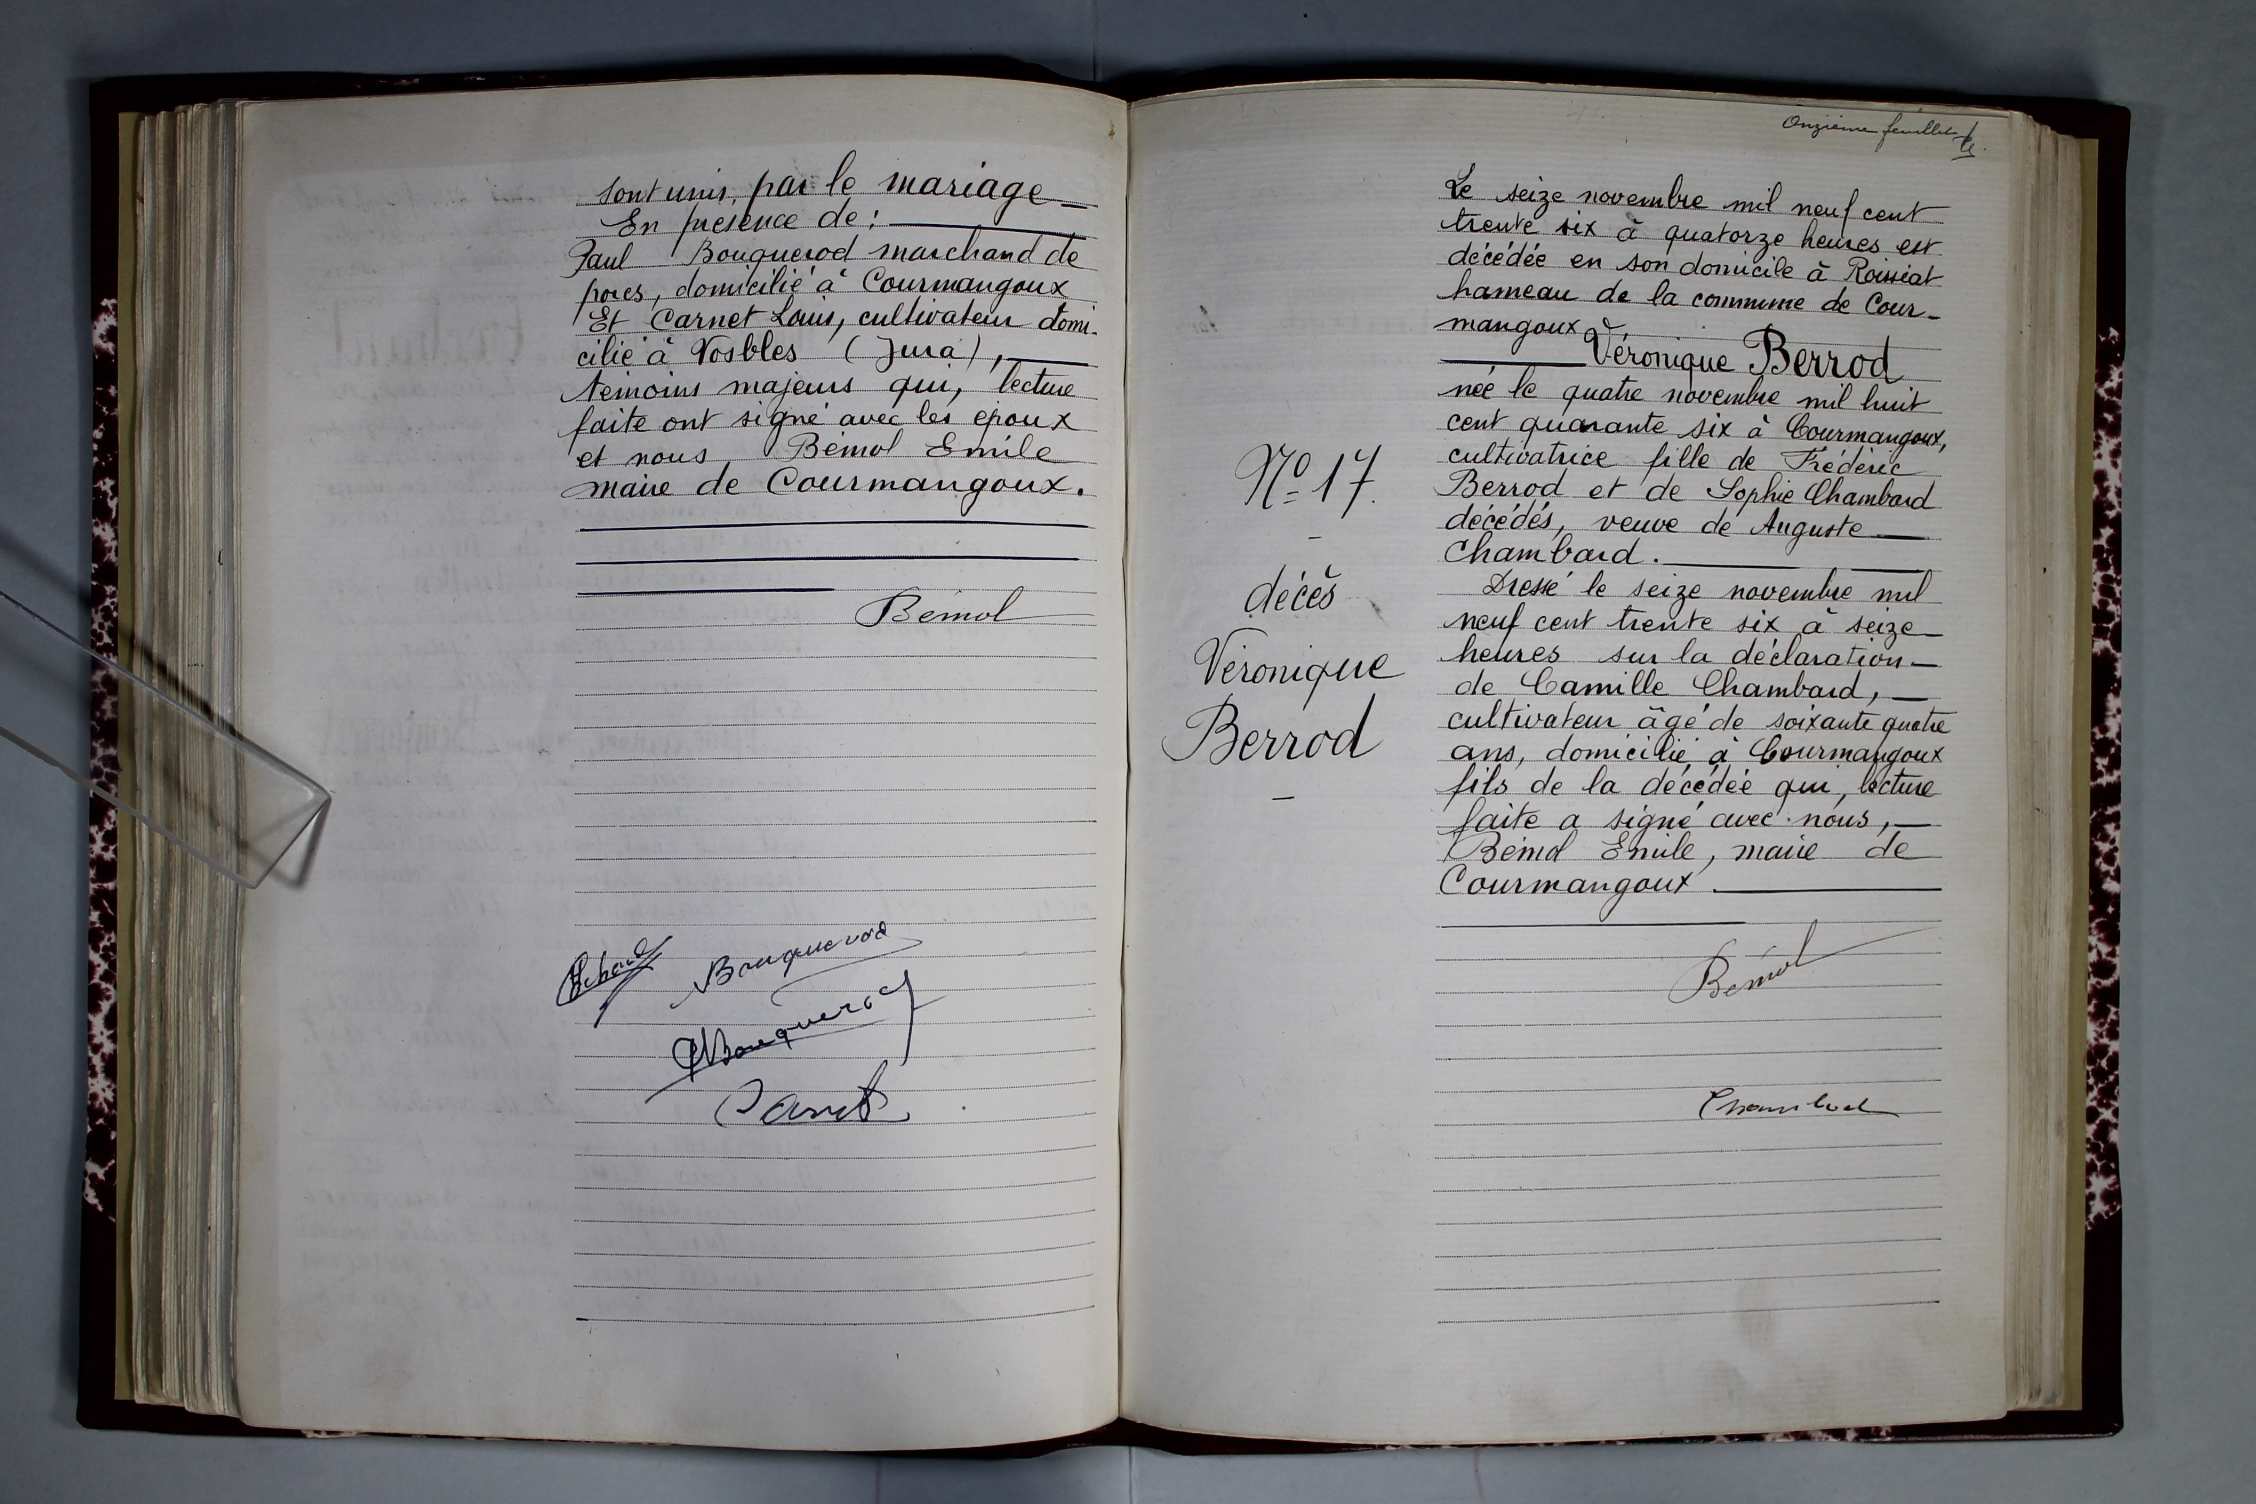 sont unis, par le mariage
En présence de :
Paul Bouquerod marchand de
porcs, domicilié à Courmangoux
Et Carnet Louis, cultivateur domi-
cilié à Vosbles (Jura),
témoins majeurs qui, lecture
faite ont signé avec les époux
et nous Bémol Emile
maire de Courmangoux.
Bémol
Bouquerod
Bouquerod
Carnet
Onzième feuillet
Le seize novembre mil neuf cent
trente six à quatorze heures est
décédée en son domicile à Roissiat
hameau de la commune de Cour-
mangoux
Véronique Berrod
née le quatre novembre mil huit
cent quarante six à Courmangoux,
cultivatrice fille de Frédéric
Berrod et de Sophie Chambard
décédés, veuve de Auguste
Chambard.
Dressé le seize novembre mil
neuf cent trente six à seize
heures sur la déclaration
de Camille Chambard,
cultivateur âgé de soixante quatre
ans, domicilié à Courmangoux
fils de la décédée qui, lecture
faite a signé avec nous,
Bémol Emile, maire de
Courmangoux
Nº 17.
décès
Véronique
Berrod
Bémol
Chambard